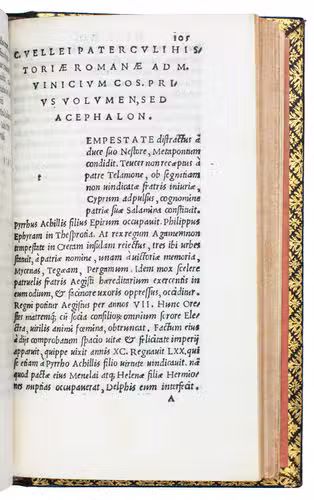 105
C. VELLEI PATERCULI HIS/
TORIÆ ROMANÆ AD M.
VINICIUM COS. PRI/
VS VOLUMEN, SED
ACEPHALON.
EMPESTATE distractus à
duce suo Nestore, Metapontum
condidit. Teucer non receptus à
patre Telamone, ob segnitiam
t non uindicatæ fratris iniuriæ,
Cyprum adpulsus, cognomine
patriæ suæ Salamina constituit.
Pyrrhus Achillis filius Epirum occupauit. Philippus
Ephyram in Thesprotia. At rex regum Agamemnon
tempestate in Cretam insulam reiectus, tres ibi urbes
statuit, à patriæ nomine, unam à uictoriæ memoria,
Mycenas, Tegæam, Pergamum. Idem mox scelere
patruelis fratris Aegisti hæreditarium exercentis in
eum odium, & facinore uxoris oppressus, occiditur.
Regni potitur Aegistus per annos VII. Hunc Ores/
tes matremq; cũ socia consiliorũ omnium sorore Ele/
ctra, uirilis animi fœmina, obtruncat. Factum eius
à dijs comprobatum spacio uitæ & felicitate imperij
apparuit, quippe uixit annis XC. Regnauit LXX, qui
se etiam à Pyrrho Achillis filio uirtute uindicauit. nã
quod pactæ eius Menelai atq; Helenæ filiæ Hermio/
nes nuptias occupauerat, Delphis eum interfecit.
A